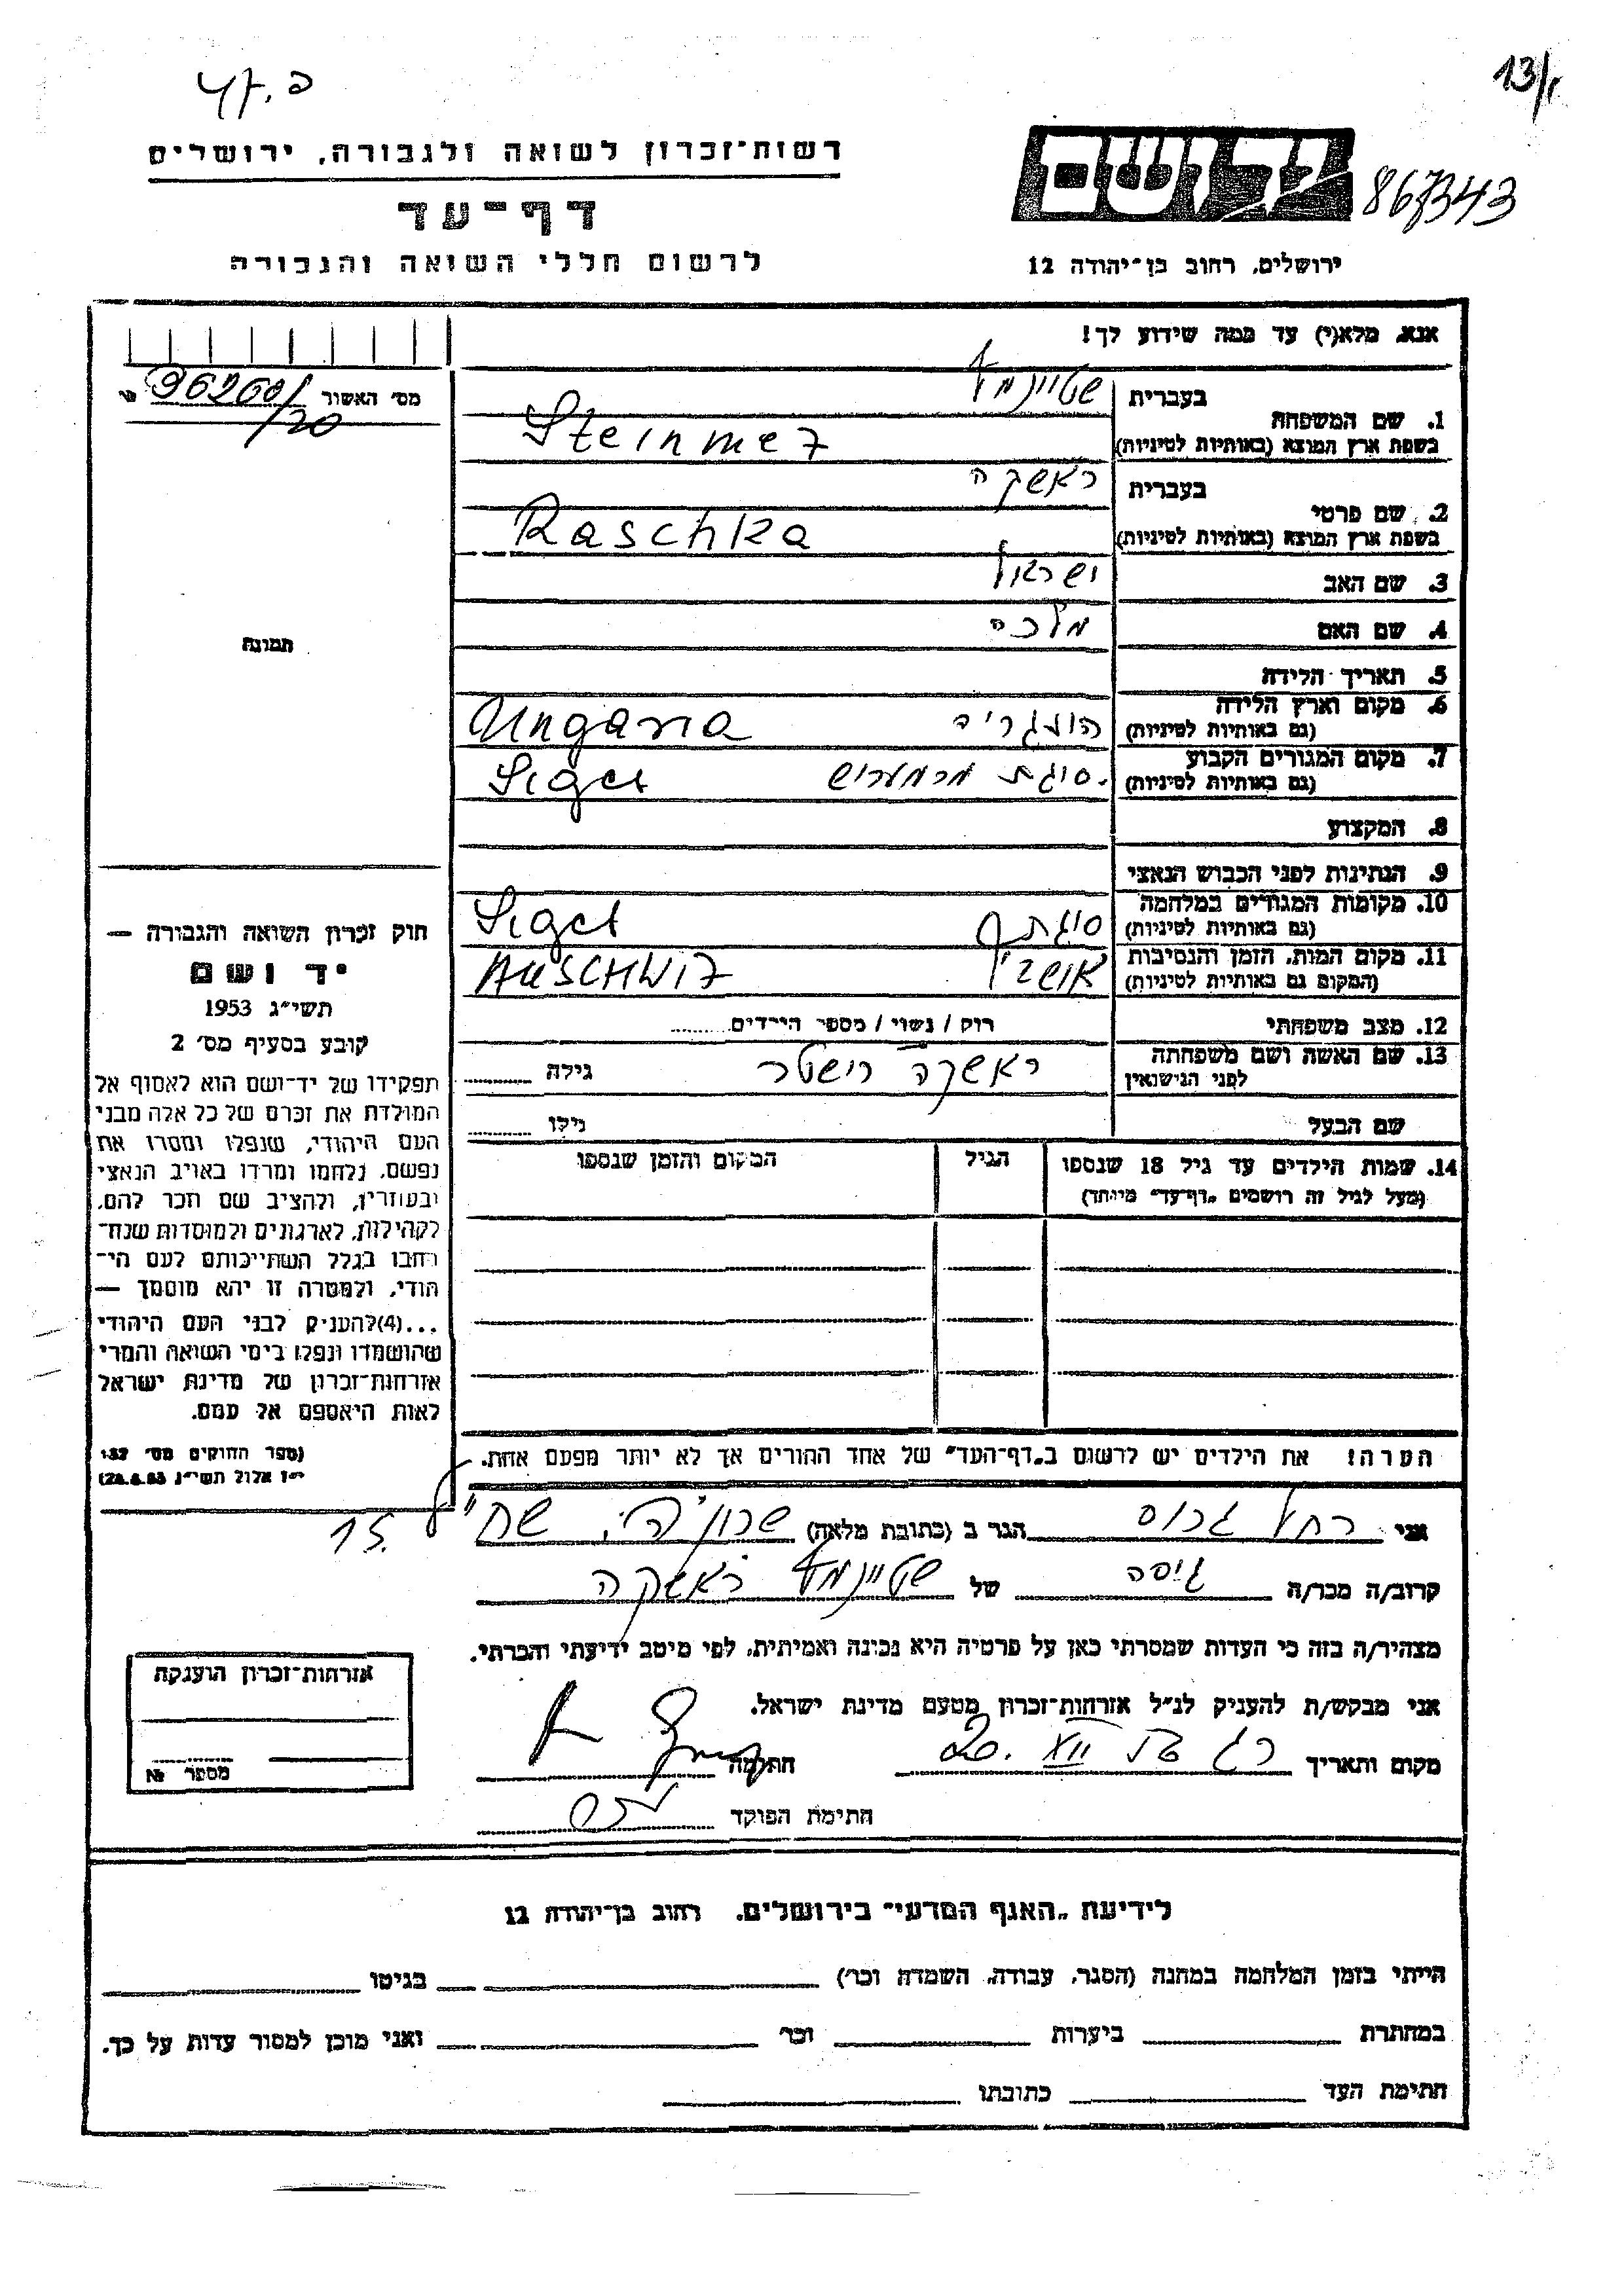 13/
רשות־זכרון לשואה ולגבורה, ירושלים
יד ושם
867343
דף־עד
לרשום חללי השואה והגבורה
ירושלים, רחוב בן־יהודה 12
אנא, מלא(י) עד כמה שידוע לך!
מס' האשור 96260/
/20
1. שם המשפחה
בעברית שטיינמץ
בשפת ארץ המוצא (באותיות לטיניות) Steinmez
2. שם פרטי
בעברית ראשקה
בשפת ארץ המוצא (באותיות לטיניות) Raschka
3. שם האב ישראל
4. שם האם מלכה
תמונה
5. תאריך הלידה
6. מקום וארץ הלידה
(גם באותיות לטיניות) הונגריה Ungaria
7. מקום המגורים הקבוע
(גם באותיות לטיניות) סיגת מרמרוש Siget
8. המקצוע
9. הנתינות לפני הכבוש הנאצי
10. מקומות המגורים במלחמה
(גם באותיות לטיניות) סיגת Siget
11. מקום המות, הזמן והנסיבות
(המקום גם באותיות לטיניות) AUSCHWIZ
12. מצב משפחתי רווק / נשוי / מספר הילדים
13. שם האשה ושם משפחתה
לפני הנישואין ראשקה גילה
שם הבעל גילו
14. שמות הילדים עד גיל 18 שנספו הגיל המקום והזמן שנספו
(מעל לגיל זה רושמים „דף־עד" מיוחד)
חוק זכרון השואה והגבורה —
יד ושם
תשי"ג 1953
קובע בסעיף מס' 2
תפקידו של יד־ושם הוא לאסוף אל
המולדת את זכרם של כל אלה מבני
העם היהודי, שנפלו ומסרו את
נפשם, נלחמו ומרדו באויב הנאצי
ובעוזריו, ולהציב שם וזכר להם,
לקהילות, לארגונים ולמוסדות שנח־
רבו בגלל השתייכותם לעם הי־
הודי, ולמטרה זו יהא מוסמך —
...(4) להעניק לבני העם היהודי
שהושמדו ונפלו בימי השואה והמרי
אזרחות־זכרון של מדינת ישראל
לאות היאספם אל עמם.
(ספר החוקים מס' 132
י"ז אלול תשי"ג 28.8.53)
הערה! את הילדים יש לרשום ב„דף־העד" של אחד ההורים אך לא יותר מפעם אחת.
אני רחל גרוס הגר ב (כתובת מלאה)
15.
קרוב/ה מכר/ה גיסה של שטיינמץ ראשקה
מצהיר/ה בזה כי העדות שמסרתי כאן על פרטיה היא נכונה ואמיתית, לפי מיטב ידיעתי והכרתי.
אני מבקש/ת להעניק לנ"ל אזרחות־זכרון מטעם מדינת ישראל.
מקום ותאריך חתימה
חתימת הפוקד
אזרחות־זכרון הוענקה
מספר №
לידיעת „האגף המדעי" בירושלים, רחוב בן־יהודה 12
הייתי בזמן המלחמה במחנה (הסגר, עבודה, השמדה וכר') בגיטו
במחתרת ביערות וכר' ואני מוכן למסור עדות על כך.
חתימת העד כתובתו